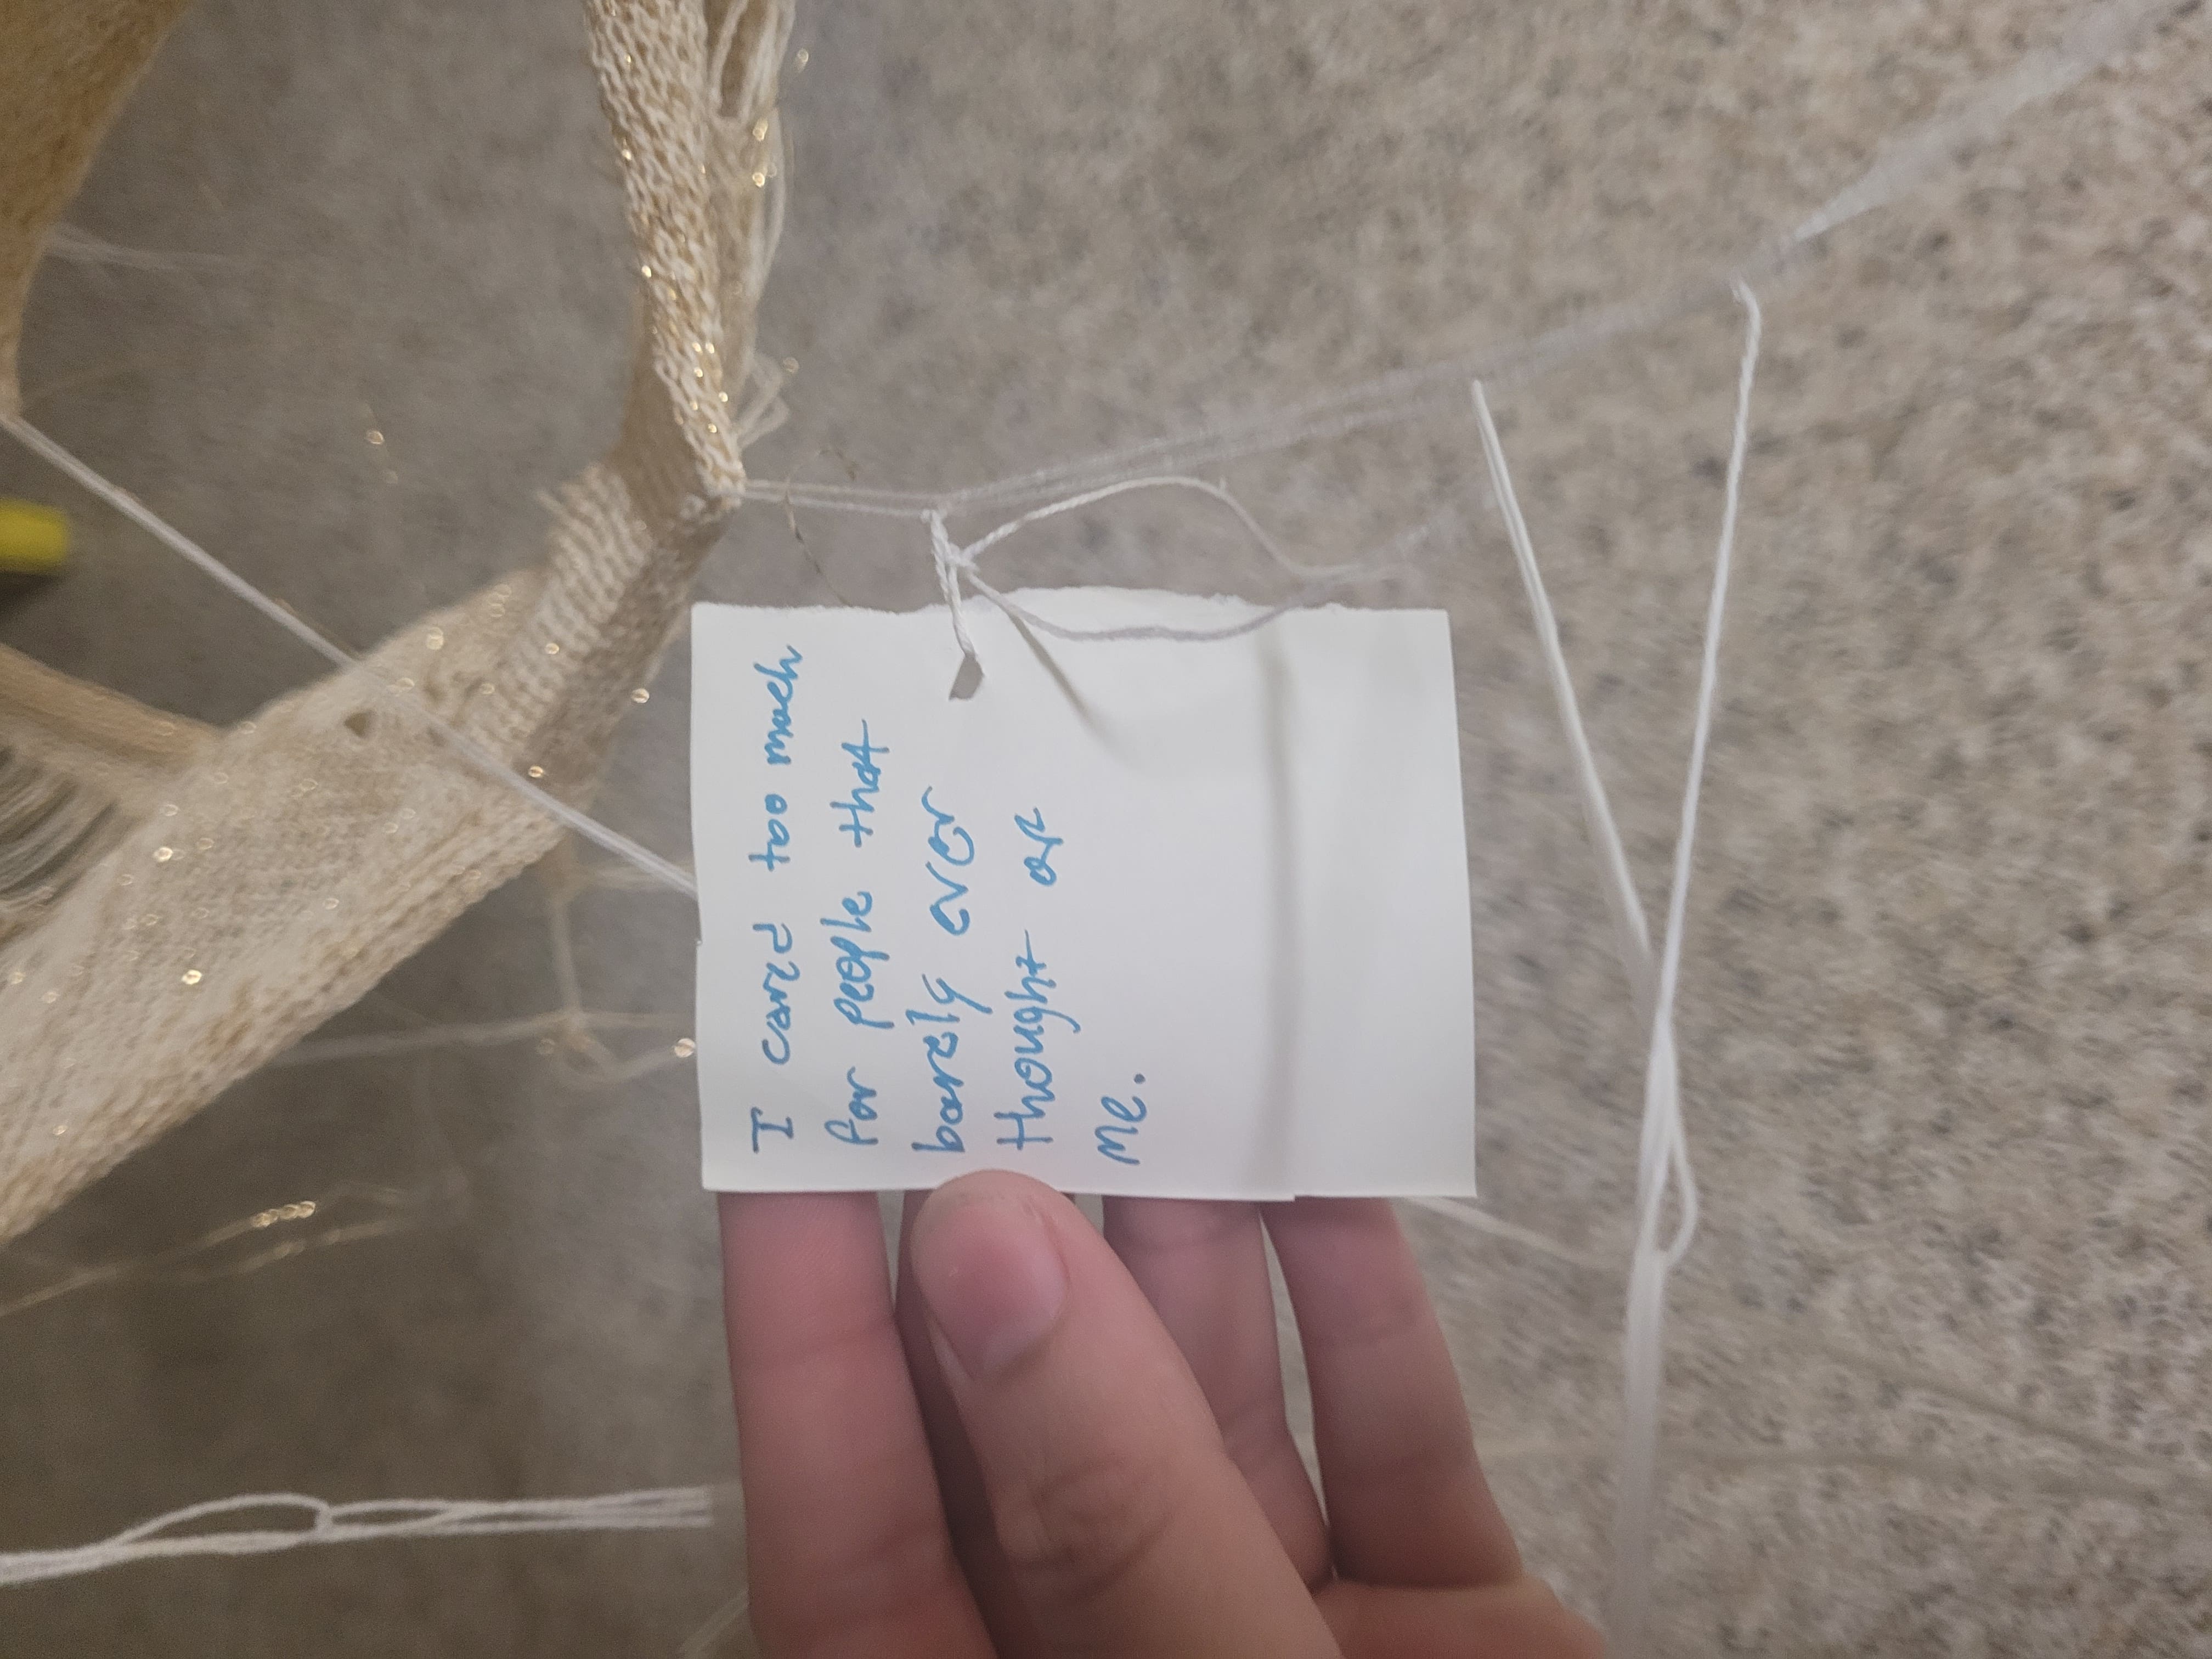 I cared too much
for people that
barely ever
thought of
me.